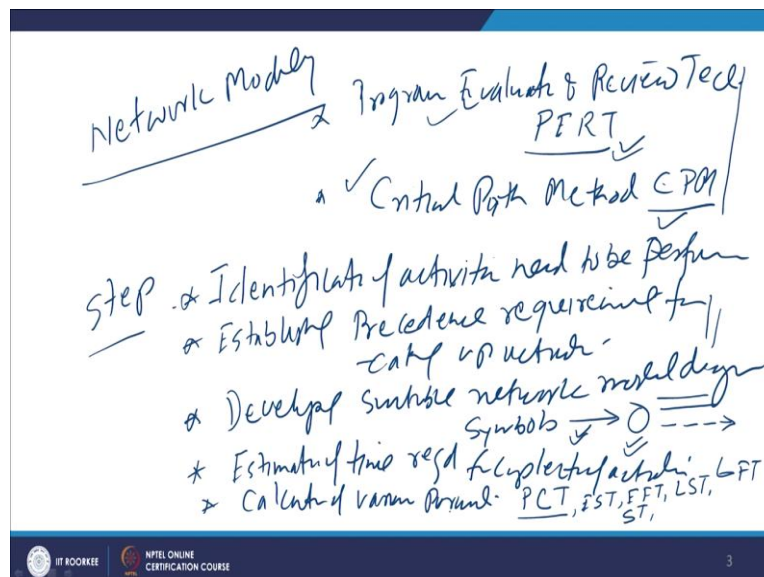 Network Models
* Program Evaluate & Review Tech
PERT
* Critical Path Method CPM
Step * Identificate of activities need to be perform
* Establishing Precedence requirement for
* Develop suitable network model diagram
Symbols
* Estimate of time reqd for completing of activities
* Calculate of various PCT, EST, EFT, LST, LFT
ST,
IIT ROORKEE
NPTEL ONLINE
CERTIFICATION COURSE
3